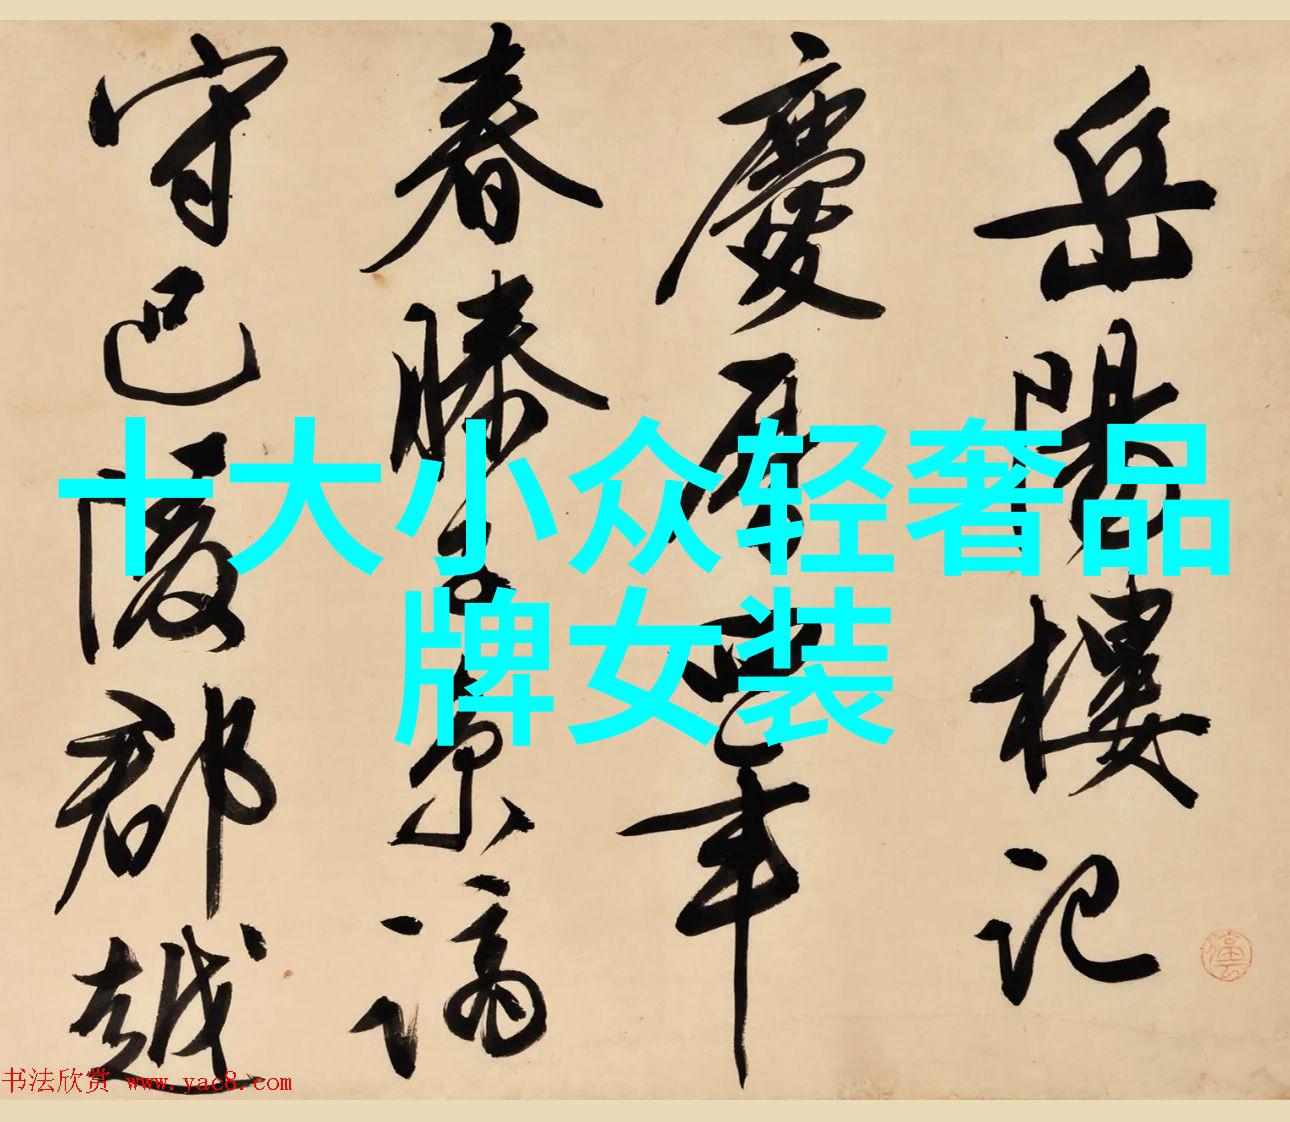 岳陽樓記
慶曆四年
春滕子京謫
守巴陵郡越
十大小众轻奢品
牌女装
书法欣赏 www.yac8.com